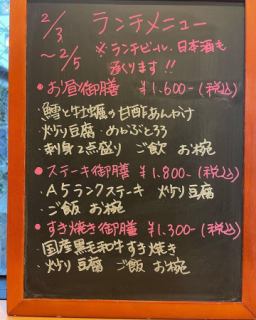 2/3 ランチメニュー
～2/5 ※ランチビール、日本酒も
承ります!!
●お昼御膳 ¥1.600-(税込)
・鱈と牡蠣の甘酢あんかけ
・炒り豆腐・めかぶとろろ
・刺身2点盛り ご飯 お椀
●ステーキ御膳 ¥1.800-(税込)
・A5ランクステーキ 炒り豆腐
・ご飯 お椀
●すき焼き御膳 ¥1.300-(税込)
・国産黒毛和牛すき焼き
・炒り豆腐 ご飯 お椀